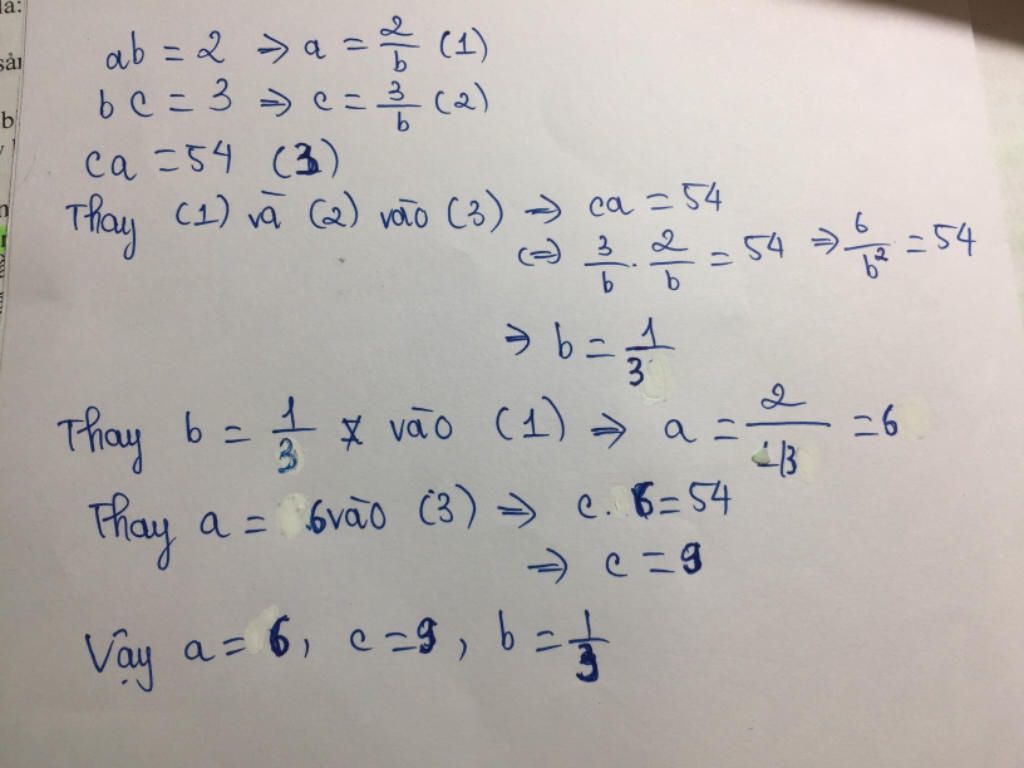 ab = 2 => a = 2/b (1)
bc = 3 => c = 3/b (2)
ca = 54 (3)
Thay (1) và (2) vào (3) => ca = 54
<=> 3/b . 2/b = 54 => 6/b² = 54
=> b = 1/3
Thay b = 1/3 vào (1) => a = 2/(1/3) = 6
Thay a = 6 vào (3) => c. 6 = 54
=> c = 9
Vậy a = 6, c = 9, b = 1/3